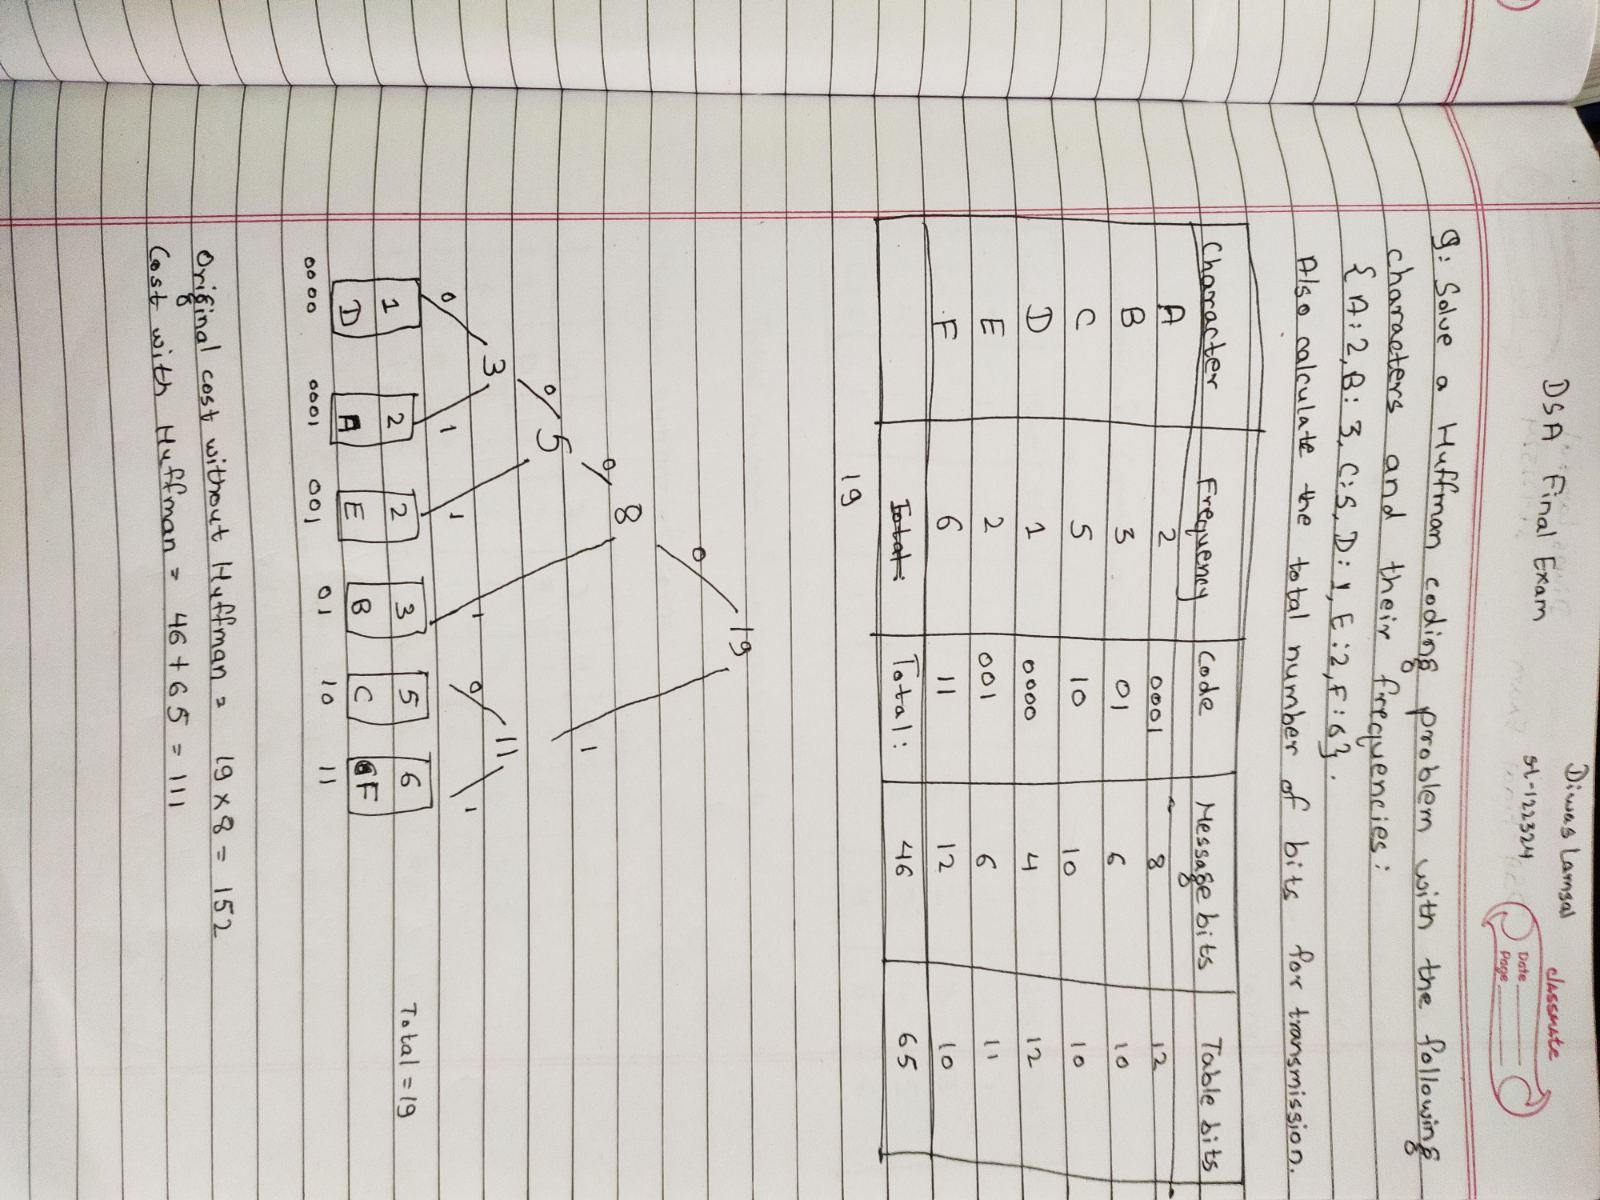 DSA Final Exam
Diwas Lamsal
st-122324
classmate
Date
Page
Q: Solve a Huffman coding problem with the following
characters and their frequencies:
{ A:2, B: 3, C:5, D: 1, E:2, F:6}.
Also calculate the total number of bits for transmission.
Character Frequency Code Message bits Table bits
A 2 0001 8 12
B 3 01 6 10
C 5 10 10 10
D 1 0000 4 12
E 2 001 6 11
F 6 11 12 10
Total: Total: 46 65
19
19
0
8
0
1
5
0
3
11
0 1 1 1 0 1
1 2 2 3 5 6
Total = 19
D A E B C F
0000 0001 001 01 10 11
Original cost without Huffman = 19 × 8 = 152
Cost with Huffman = 46 + 65 = 111